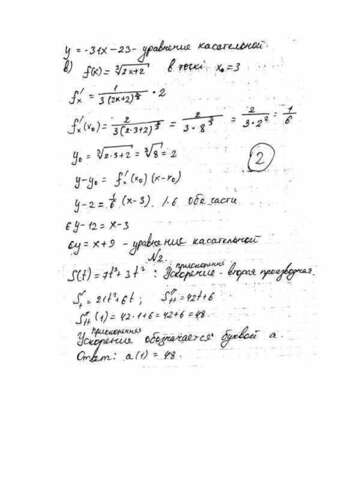 y = -31x - 23 - уравнение касательной.
в) f(x) = ∛(2x+2) в точкі x₀ = 3
f'ₓ = 1/(3(2x+2)^(2/3)) · 2
f'ₓ(x₀) = 2/(3(2·3+2)^(2/3)) = 2/(3·8^(2/3)) = 2/(3·2²) = 1/6
y₀ = ∛(2·3+2) = ∛8 = 2
②
y - y₀ = f'ₓ(x₀)(x-x₀)
y - 2 = 1/6 (x-3). /·6 обе части
6y - 12 = x - 3
6y = x + 9 - уравнение касательной
N2.
прискорення
S(t) = 7t³ + 3t² : Ускорение - вторая производная.
S'ₜ = 21t² + 6t ; S''ₜₜ = 42t + 6
S''ₜₜ(1) = 42·1+6 = 42+6 = 48.
прискорення
Ускорение обозначается буквой a.
Ответ: a(1) = 48.